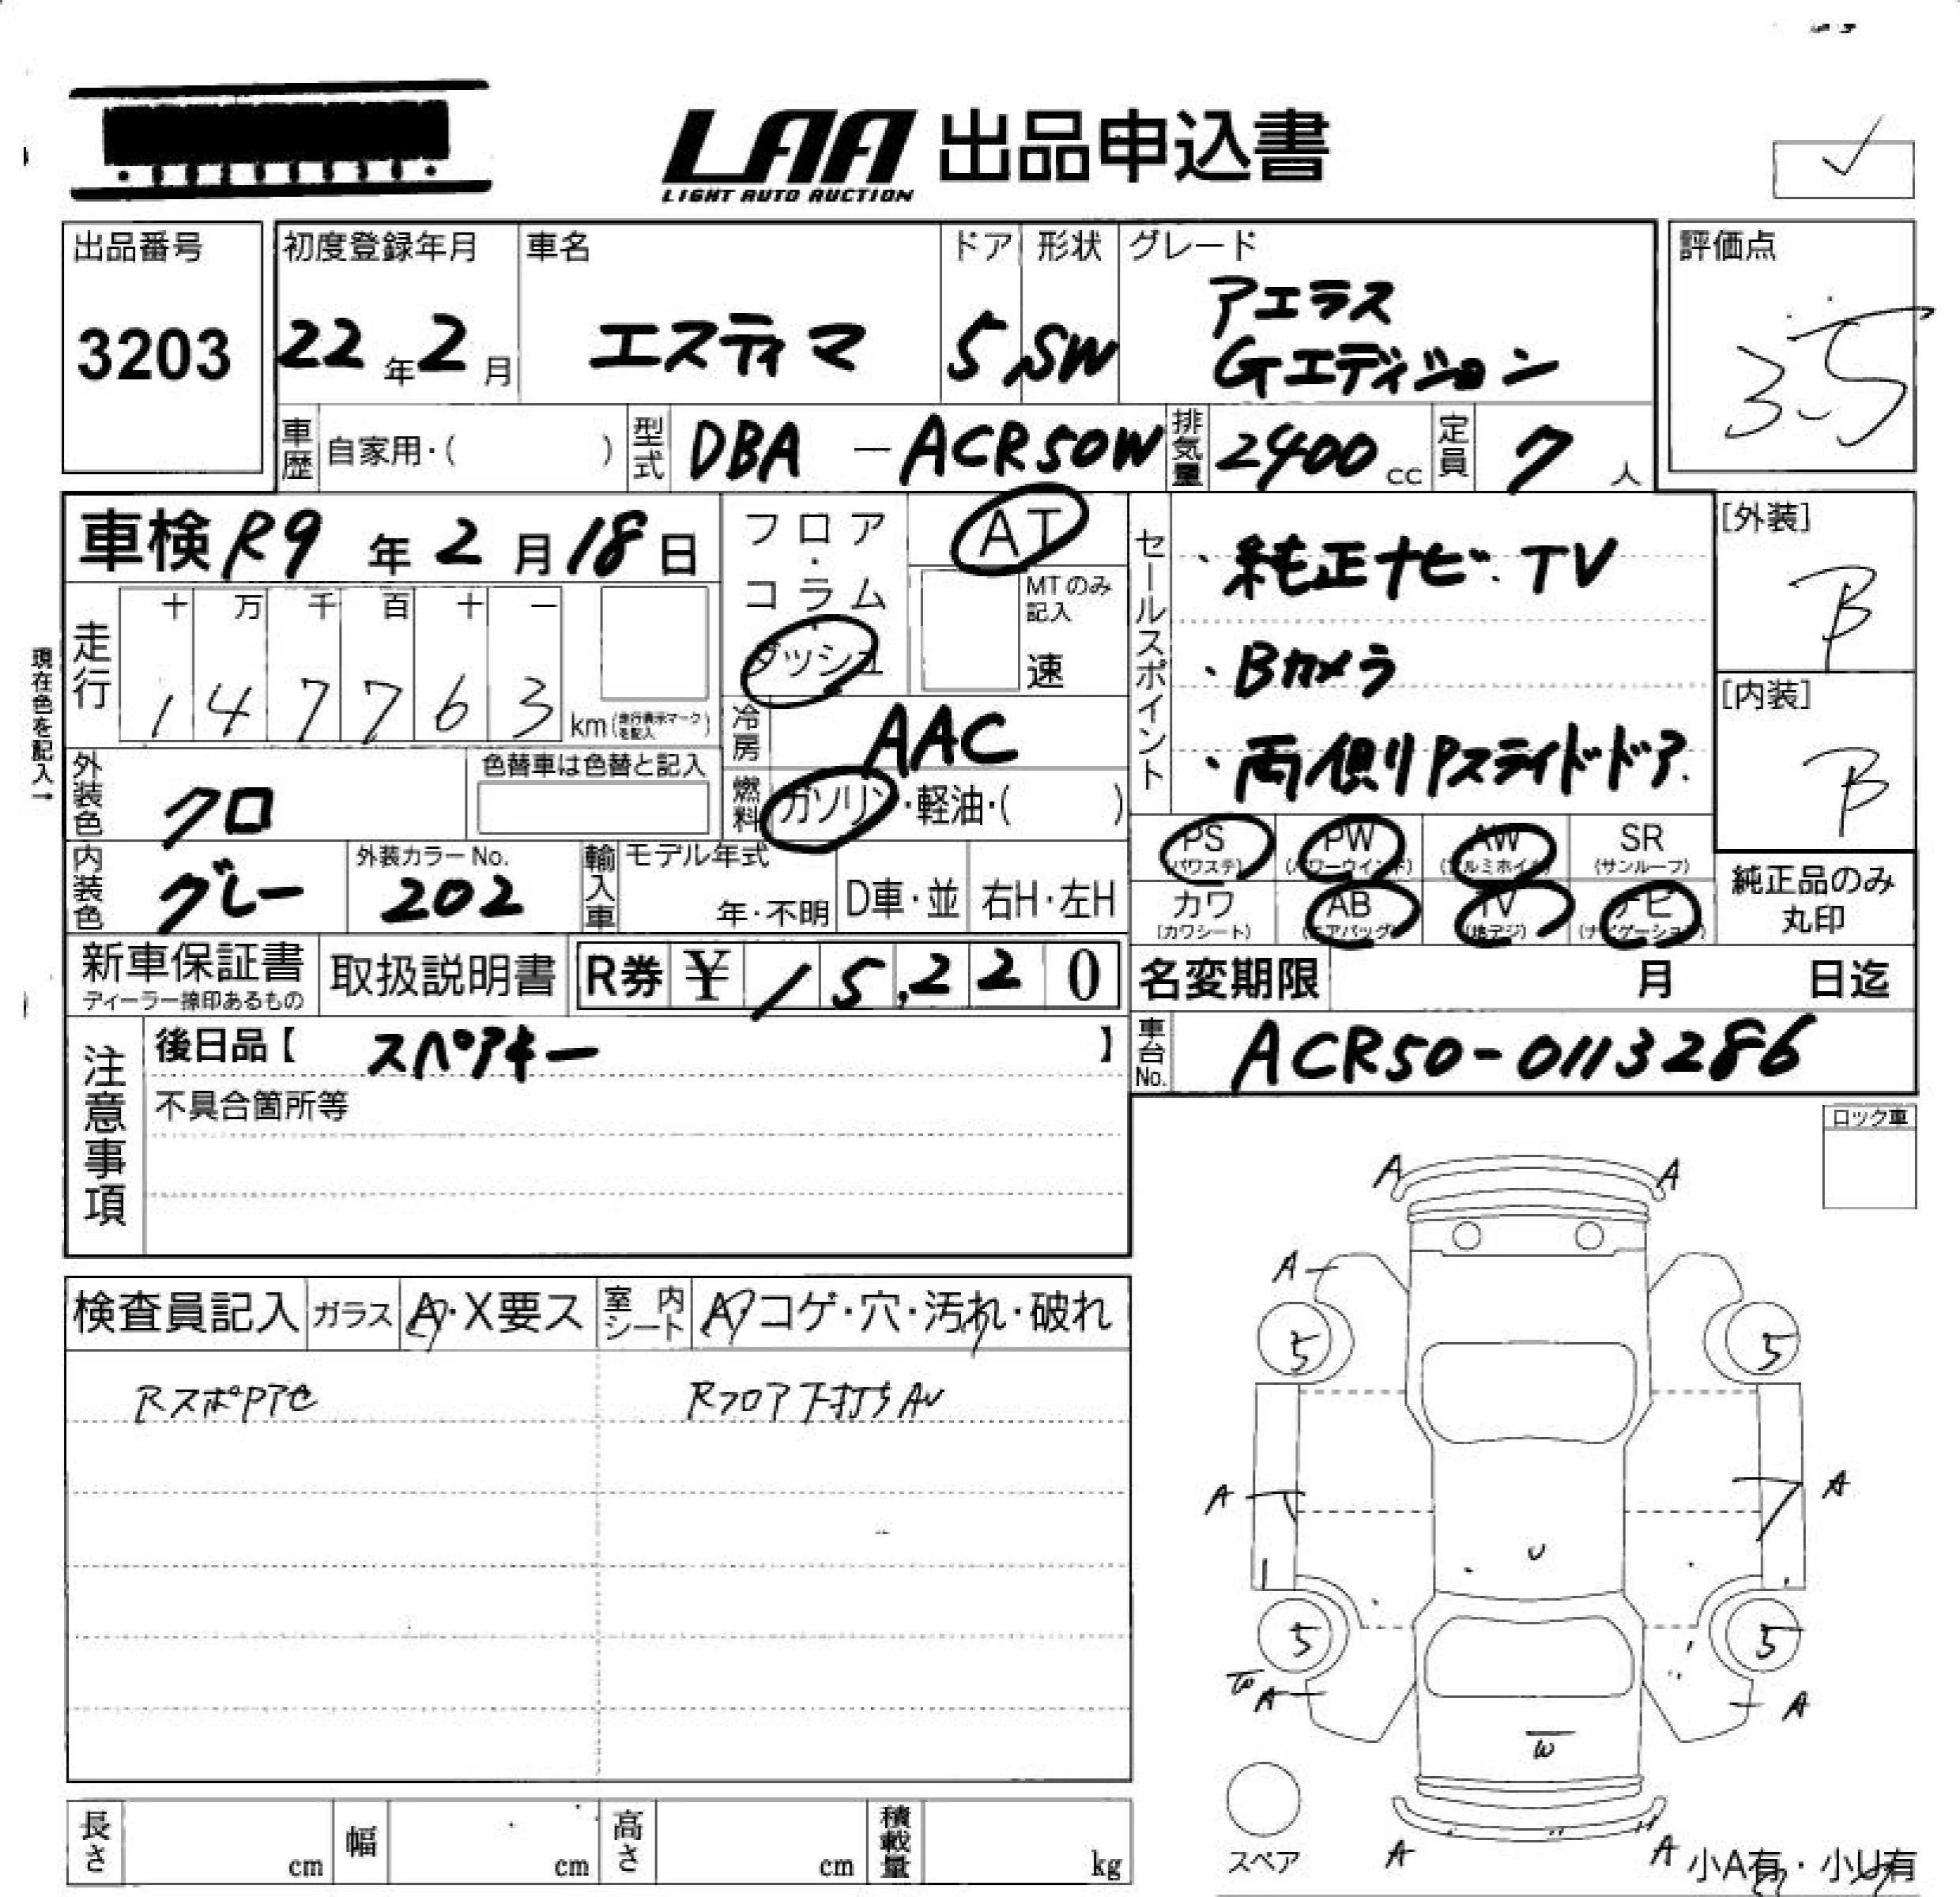 LAA 出品申込書
LIGHT AUTO AUCTION
出品番号
3203
初度登録年月
22年2月
車名
エスティマ
ドア
5
形状
SW
グレード
アエラス
Gエディション
評価点
3.5
車歴 自家用・( )
型式 DBA－ACR50W
排気量 2400cc
定員 7人
車検 R9年2月18日
フロア・コラム
ダッシュ
AT
MTのみ記入
速
セールスポイント
・純正ナビ・TV
・Bカメラ
・両側Pスライドドア
[外装]
B
[内装]
B
現在色を記入→
走行
十 万 千 百 十 一
1 4 7 7 6 3 km(走行表示マークを記入)
冷房 AAC
外装色 クロ
色替車は色替と記入
燃料 ガソリン・軽油・( )
内装色 グレー
外装カラーNo.
202
輸入車
モデル年式
年・不明
D車・並
右H・左H
PS (パワステ)
PW (パワーウインド)
AW (アルミホイル)
SR (サンルーフ)
カワ (カワシート)
AB (エアバッグ)
TV (地デジ)
ナビ (ナビゲーション)
純正品のみ
丸印
新車保証書
ディーラー捺印あるもの
取扱説明書
R券 ¥ 15,220
名変期限 月 日迄
注意事項
後日品【 スペアキー 】
不具合箇所等
車台No. ACR50-0113286
ロック車
検査員記入
ガラス A・X要ス
室内シート A・コゲ・穴・汚れ・破れ
RスポPア色
Rフロア下打ちAU
A A
A
5 5
A A
U
5 5
A A
W
スペア
A A
小A有・小U有
長さ cm
幅 cm
高さ cm
積載量 kg